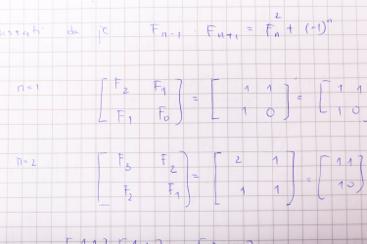 da je F_{n-1} · F_{n+1} = F_n^2 + (-1)^n
n=1 [F_2 F_1; F_1 F_0] = [1 1; 1 0] = [1 1; 1 0
n=2 [F_3 F_2; F_2 F_1] = [2 1; 1 1] = [1 1; 1 0]